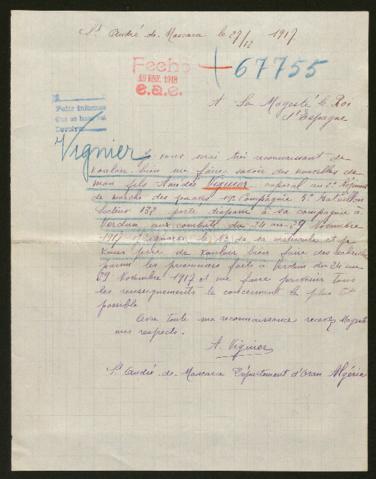 St André de Mascara le 27/12 1917
Fecho
19 ENE. 1918
e.a.e.
+67755
A Sa Magesté le Roi
d'Espagne
Vignier
Je vous serai très reconnaissant de
vouloir bien me faire savoir des nouvelles de
mon fils Vignier caporal au 2e Regiment
de marche des zouaves 19e Compagnie 5e Bataillon
Secteur 132 porté disparu à sa compagnie à
Verdun aux combats du 24 au 29 Novembre
1917 J'ignore le No de la matricule et je
vous prie de vouloir bien faire des recherches
parmi les prisonniers faits à Verdun du 24 au
29 Novembre 1917 et me faire parvenir tous
les renseignements le concernant le plus tôt
possible
Avec toute ma reconnaissance recevez Magesté
mes respects.
A. Vignier
St André de Mascara Département d'Oran Algérie